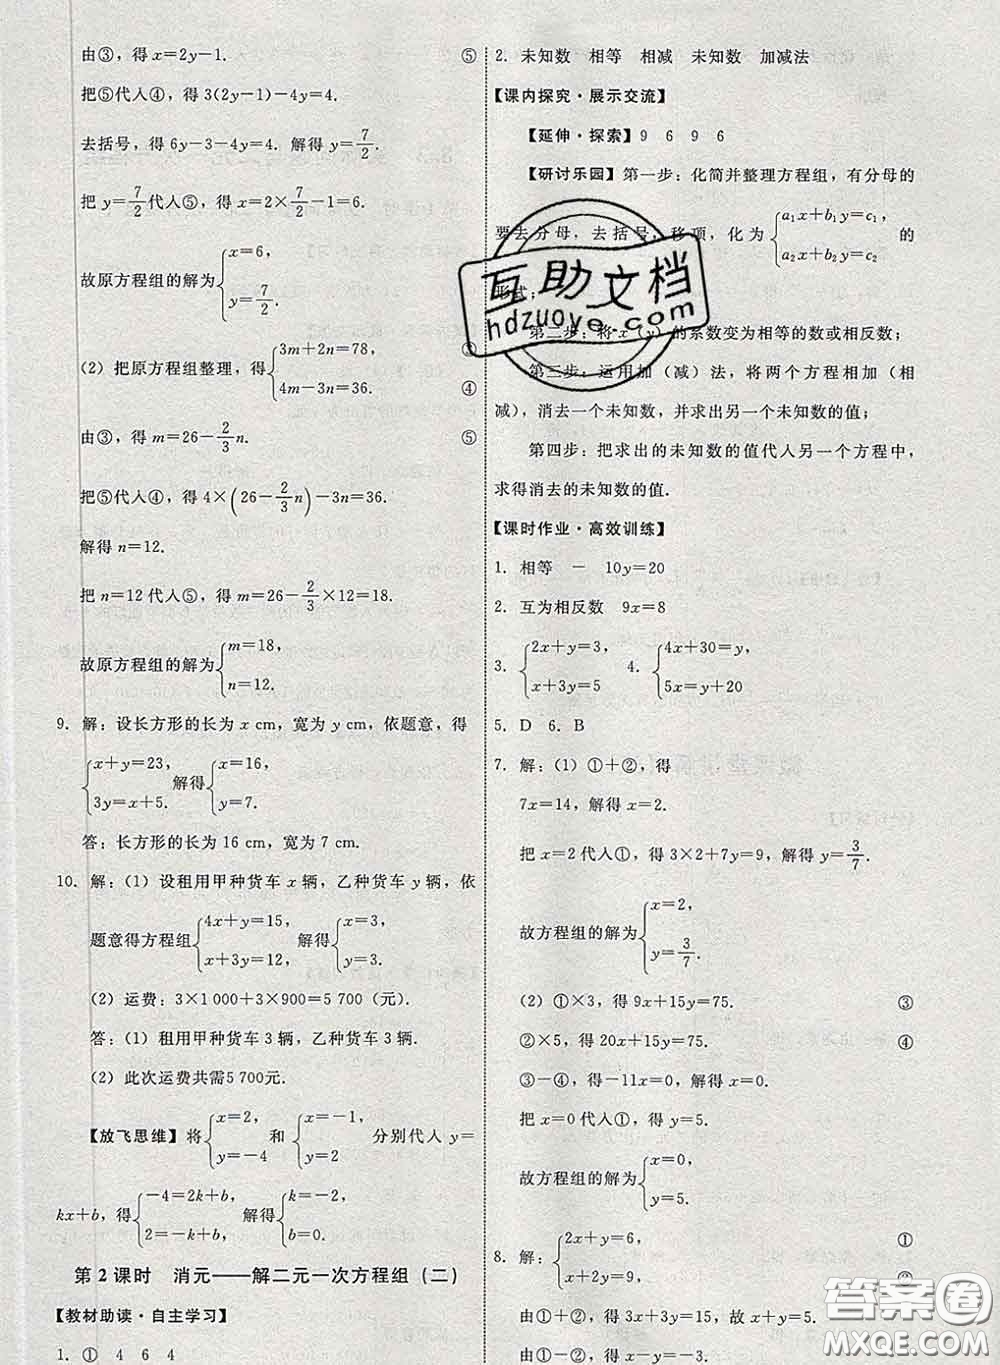 由③，得 x=2y−1. ⑤
把⑤代人④，得 3(2y−1)−4y=4.
去括号，得 6y−3−4y=4. 解得 y=7/2.
把 y=7/2代人⑤，得 x=2×7/2−1=6.
故原方程组的解为{x=6, y=7/2.
(2) 把原方程组整理，得{3m+2n=78, ③ 4m−3n=36. ④
由③，得 m=26−2/3n. ⑤
把⑤代人④，得 4×(26−2/3n)−3n=36.
解得 n=12.
把 n=12 代人⑤，得 m=26−2/3×12=18.
故原方程组的解为{m=18, n=12.
9. 解：设长方形的长为 x cm，宽为 y cm，依题意，得
{x+y=23, 3y=x+5. 解得{x=16, y=7.
答：长方形的长为 16 cm，宽为 7 cm.
10. 解：(1) 设租用甲种货车 x 辆，乙种货车 y 辆，依
题意得方程组{4x+y=15, x+3y=12, 解得{x=3, y=3.
(2) 运费：3×1 000+3×900=5 700（元）.
答：(1) 租用甲种货车 3 辆，乙种货车 3 辆.
(2) 此次运费共需5 700元.
【放飞思维】将{x=2, y=−4 和{x=−1, y=2 分别代人 y=
kx+b，得{−4=2k+b, 2=−k+b, 解得{k=−2, b=0.
第 2 课时 消元——解二元一次方程组（二）
【教材助读·自主学习】
1. ① 4 6 4
2. 未知数 相等 相减 未知数 加减法
【课内探究·展示交流】
【延伸·探索】9 6 9 6
【研讨乐园】第一步：化简并整理方程组，有分母的
要去分母，去括号，移项，化为{a₁x+b₁y=c₁, a₂x+b₂y=c₂ 的
形式；
第二步：将 x（y）的系数变为相等的数或相反数；
第三步：运用加（减）法，将两个方程相加（相
减），消去一个未知数，并求出另一个未知数的值；
第四步：把求出的未知数的值代人另一个方程中，
求得消去的未知数的值.
【课时作业·高效训练】
1. 相等 − 10y=20
2. 互为相反数 9x=8
3. {2x+y=3, x+3y=5 4. {4x+30=y, 5x=y+20
5. D 6. B
7. 解：(1) ①+②，得
7x=14，解得 x=2.
把 x=2 代人①，得 3×2+7y=9，解得 y=3/7.
故方程组的解为{x=2, y=3/7.
(2) ①×3，得 9x+15y=75. ③
②×5，得 20x+15y=75. ④
③−④，得−11x=0，解得 x=0.
把 x=0 代人①，得 y=5.
故方程组的解为{x=0, y=5.
8. 解：{2x+y=6, ① x+2y=6, ②
由①+②，得 3x+3y=12，故 x+y=4.
由①−②，得 x−y=0.
互助文档
hdzuoye.com
答案圈
MXQE.COM